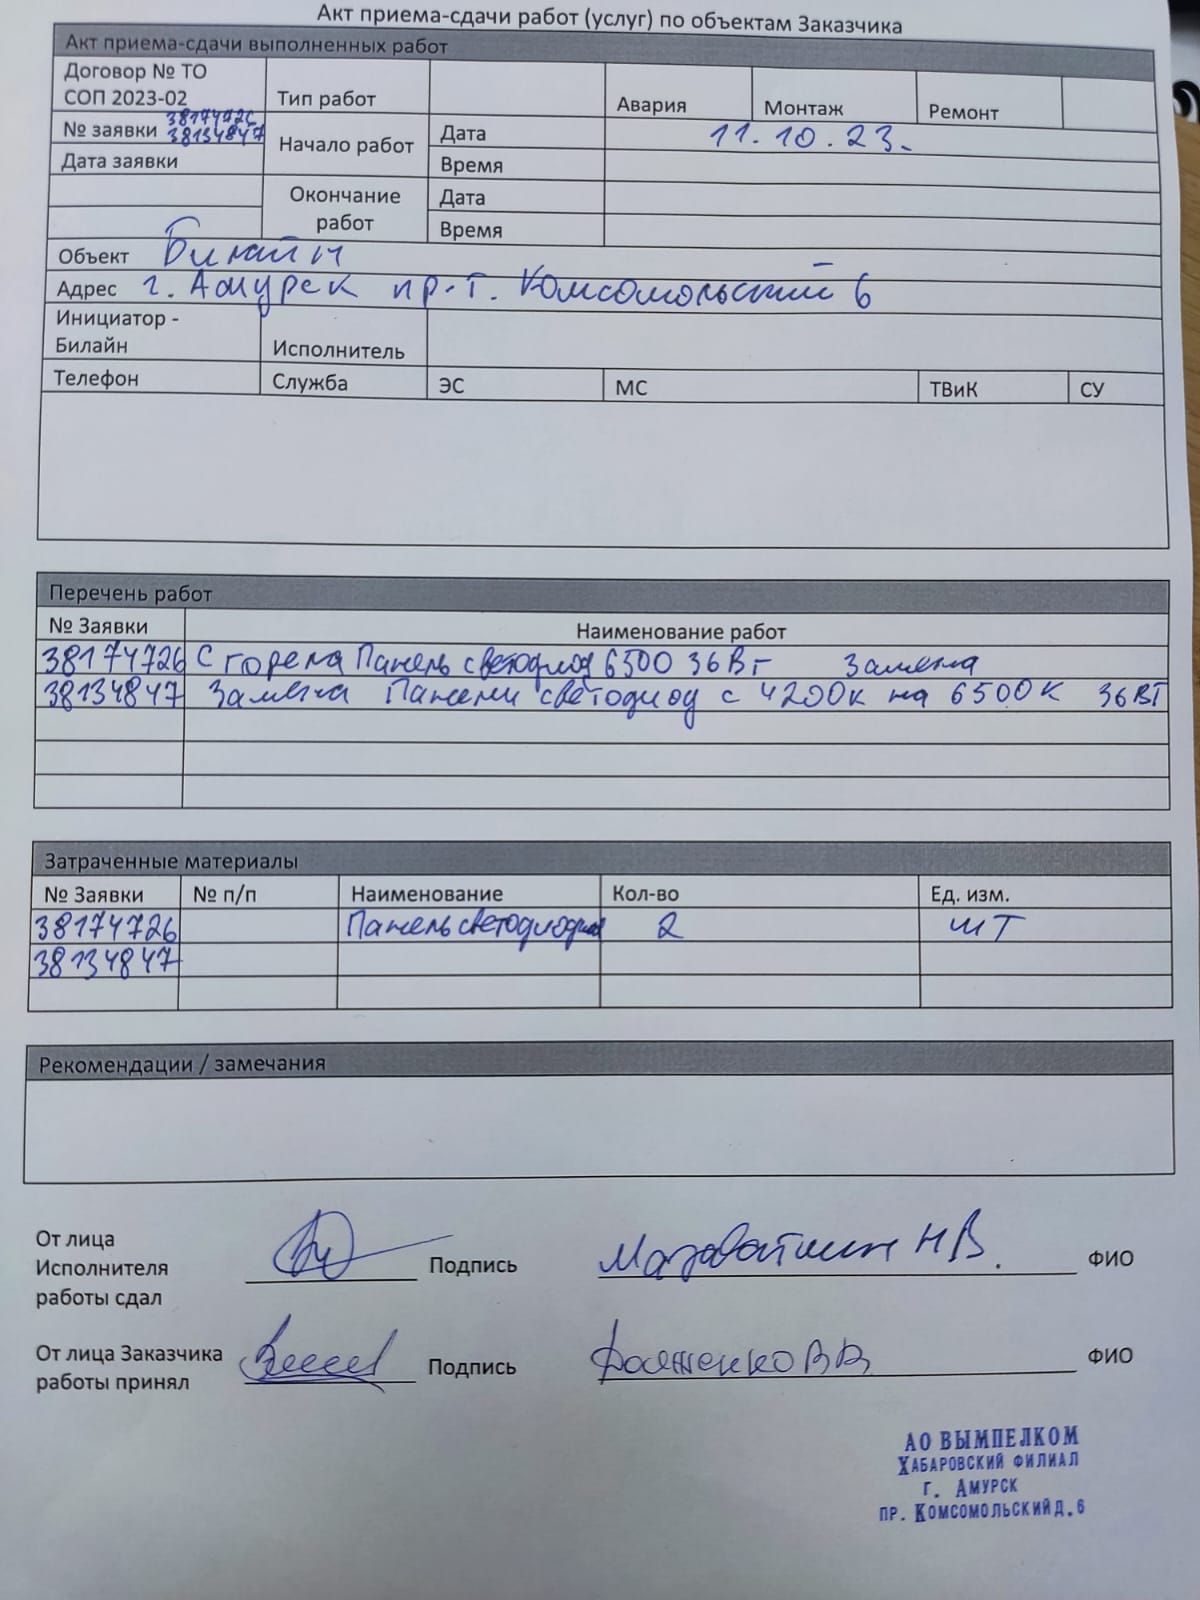 Акт приема-сдачи работ (услуг) по объектам Заказчика
Акт приема-сдачи выполненных работ
Договор № ТО СОП 2023-02
Тип работ Авария Монтаж Ремонт
№ заявки 38174726 38134847
Начало работ Дата 11.10.23.
Дата заявки
Время
Окончание работ Дата
Время
Объект Билайн
Адрес г. Амурск пр-т. Комсомольский 6
Инициатор - Билайн
Исполнитель
Телефон Служба ЭС МС ТВиК СУ
Перечень работ
№ Заявки Наименование работ
38174726 Сгорела Панель светодиод 6500 36Вт Замена
38134847 Замена Панели светодиод с 4200к на 6500К 36ВТ
Затраченные материалы
№ Заявки № п/п Наименование Кол-во Ед. изм.
38174726 Панель светодиодная 2 шт
38134847
Рекомендации / замечания
От лица
Исполнителя Подпись Н В. ФИО
работы сдал
От лица Заказчика Подпись В В ФИО
работы принял
АО ВЫМПЕЛКОМ
ХАБАРОВСКИЙ ФИЛИАЛ
г. АМУРСК
ПР. КОМСОМОЛЬСКИЙ Д.6